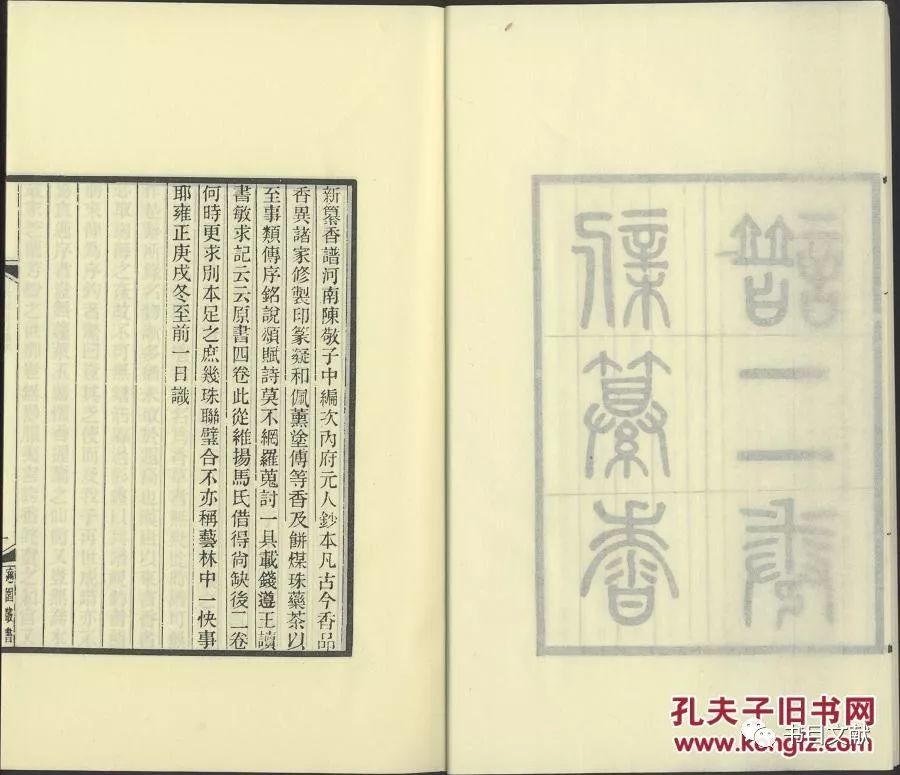 新纂香
譜二卷
新纂香譜河南陳敬子中編次內府元人鈔本凡古今香品
香異諸家修製印篆凝和佩薰塗傅等香及餅煤珠藥茶以
至事類傳序銘說頌賦詩莫不網羅蒐討一具載錢遵王讀
書敏求記云云原書四卷此從維揚馬氏借得尙缺後二卷
何時更求別本足之庶幾珠聯璧合不亦稱藝林中一快事
耶雍正庚戌冬至前一日識
適園叢書
孔夫子旧书网
www.kongfz.com
书目文献